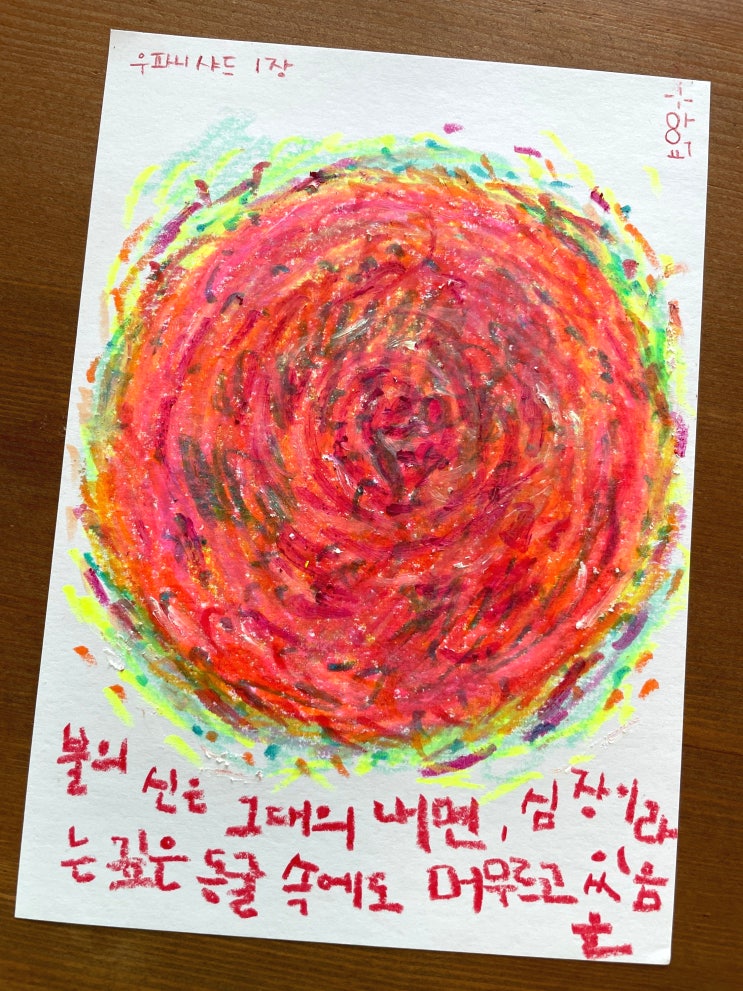 우파니샤드 1장
불의 신은 그대의 내면, 심장이라
는 깊은 동굴 속에도 머무르고 있음
을